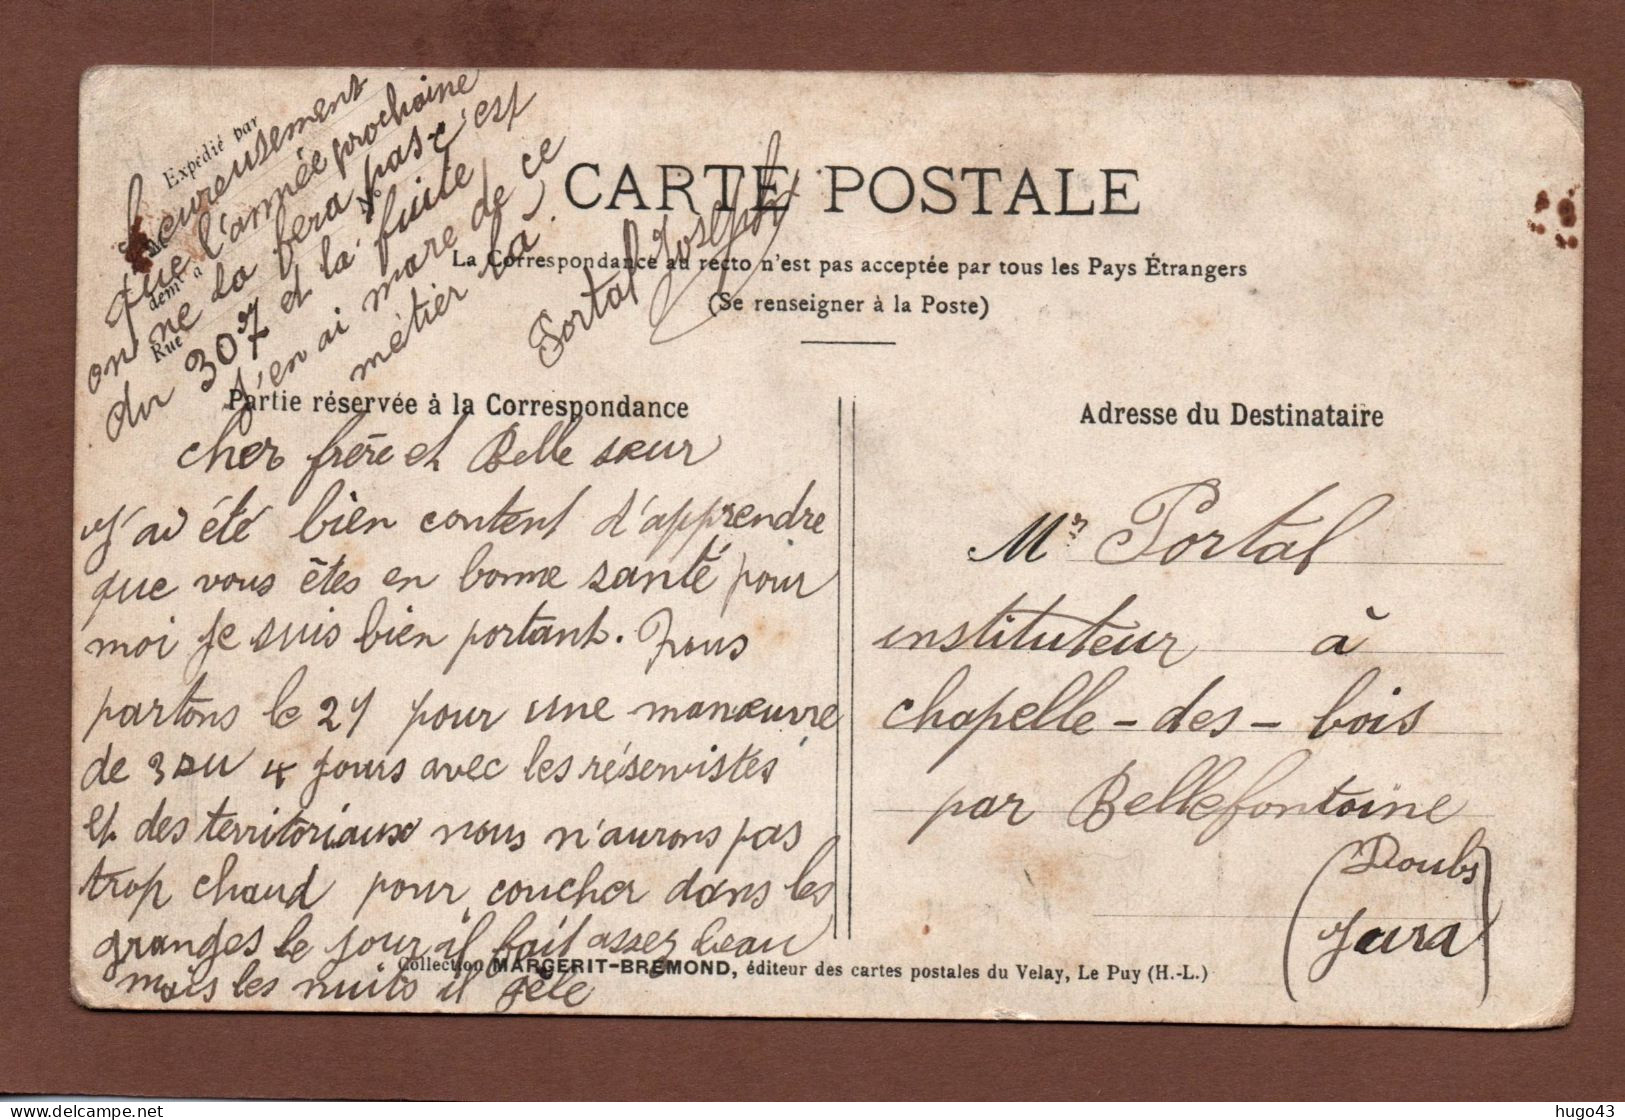 CARTE POSTALE
La Correspondance au recto n'est pas acceptée par tous les Pays Étrangers
(Se renseigner à la Poste)
Partie réservée à la Correspondance
cher frère et Belle sœur
J'ai été bien content d'apprendre
que vous êtes en bonne santé pour
moi je suis bien portant. Nous
partons le 27 pour une manœuvre
de 3 ou 4 jours avec les réservistes
et des territoriaux nous n'aurons pas
trop chaud pour coucher dans les
granges le jour il fait assez beau
mais les nuits il gèle
Expédié par
demt à
Rue
Heureusement
que l'année prochaine
on ne la fera pas c'est
du 307 et la fuite
J'en ai mare de ce
métier là.
Portal Joseph
Adresse du Destinataire
Mr Portal
instituteur à
chapelle-des-bois
par Bellefontaine
(Doubs
Jura)
Collection MARGERIT-BREMOND, éditeur des cartes postales du Velay, Le Puy (H.-L.)
hugo43